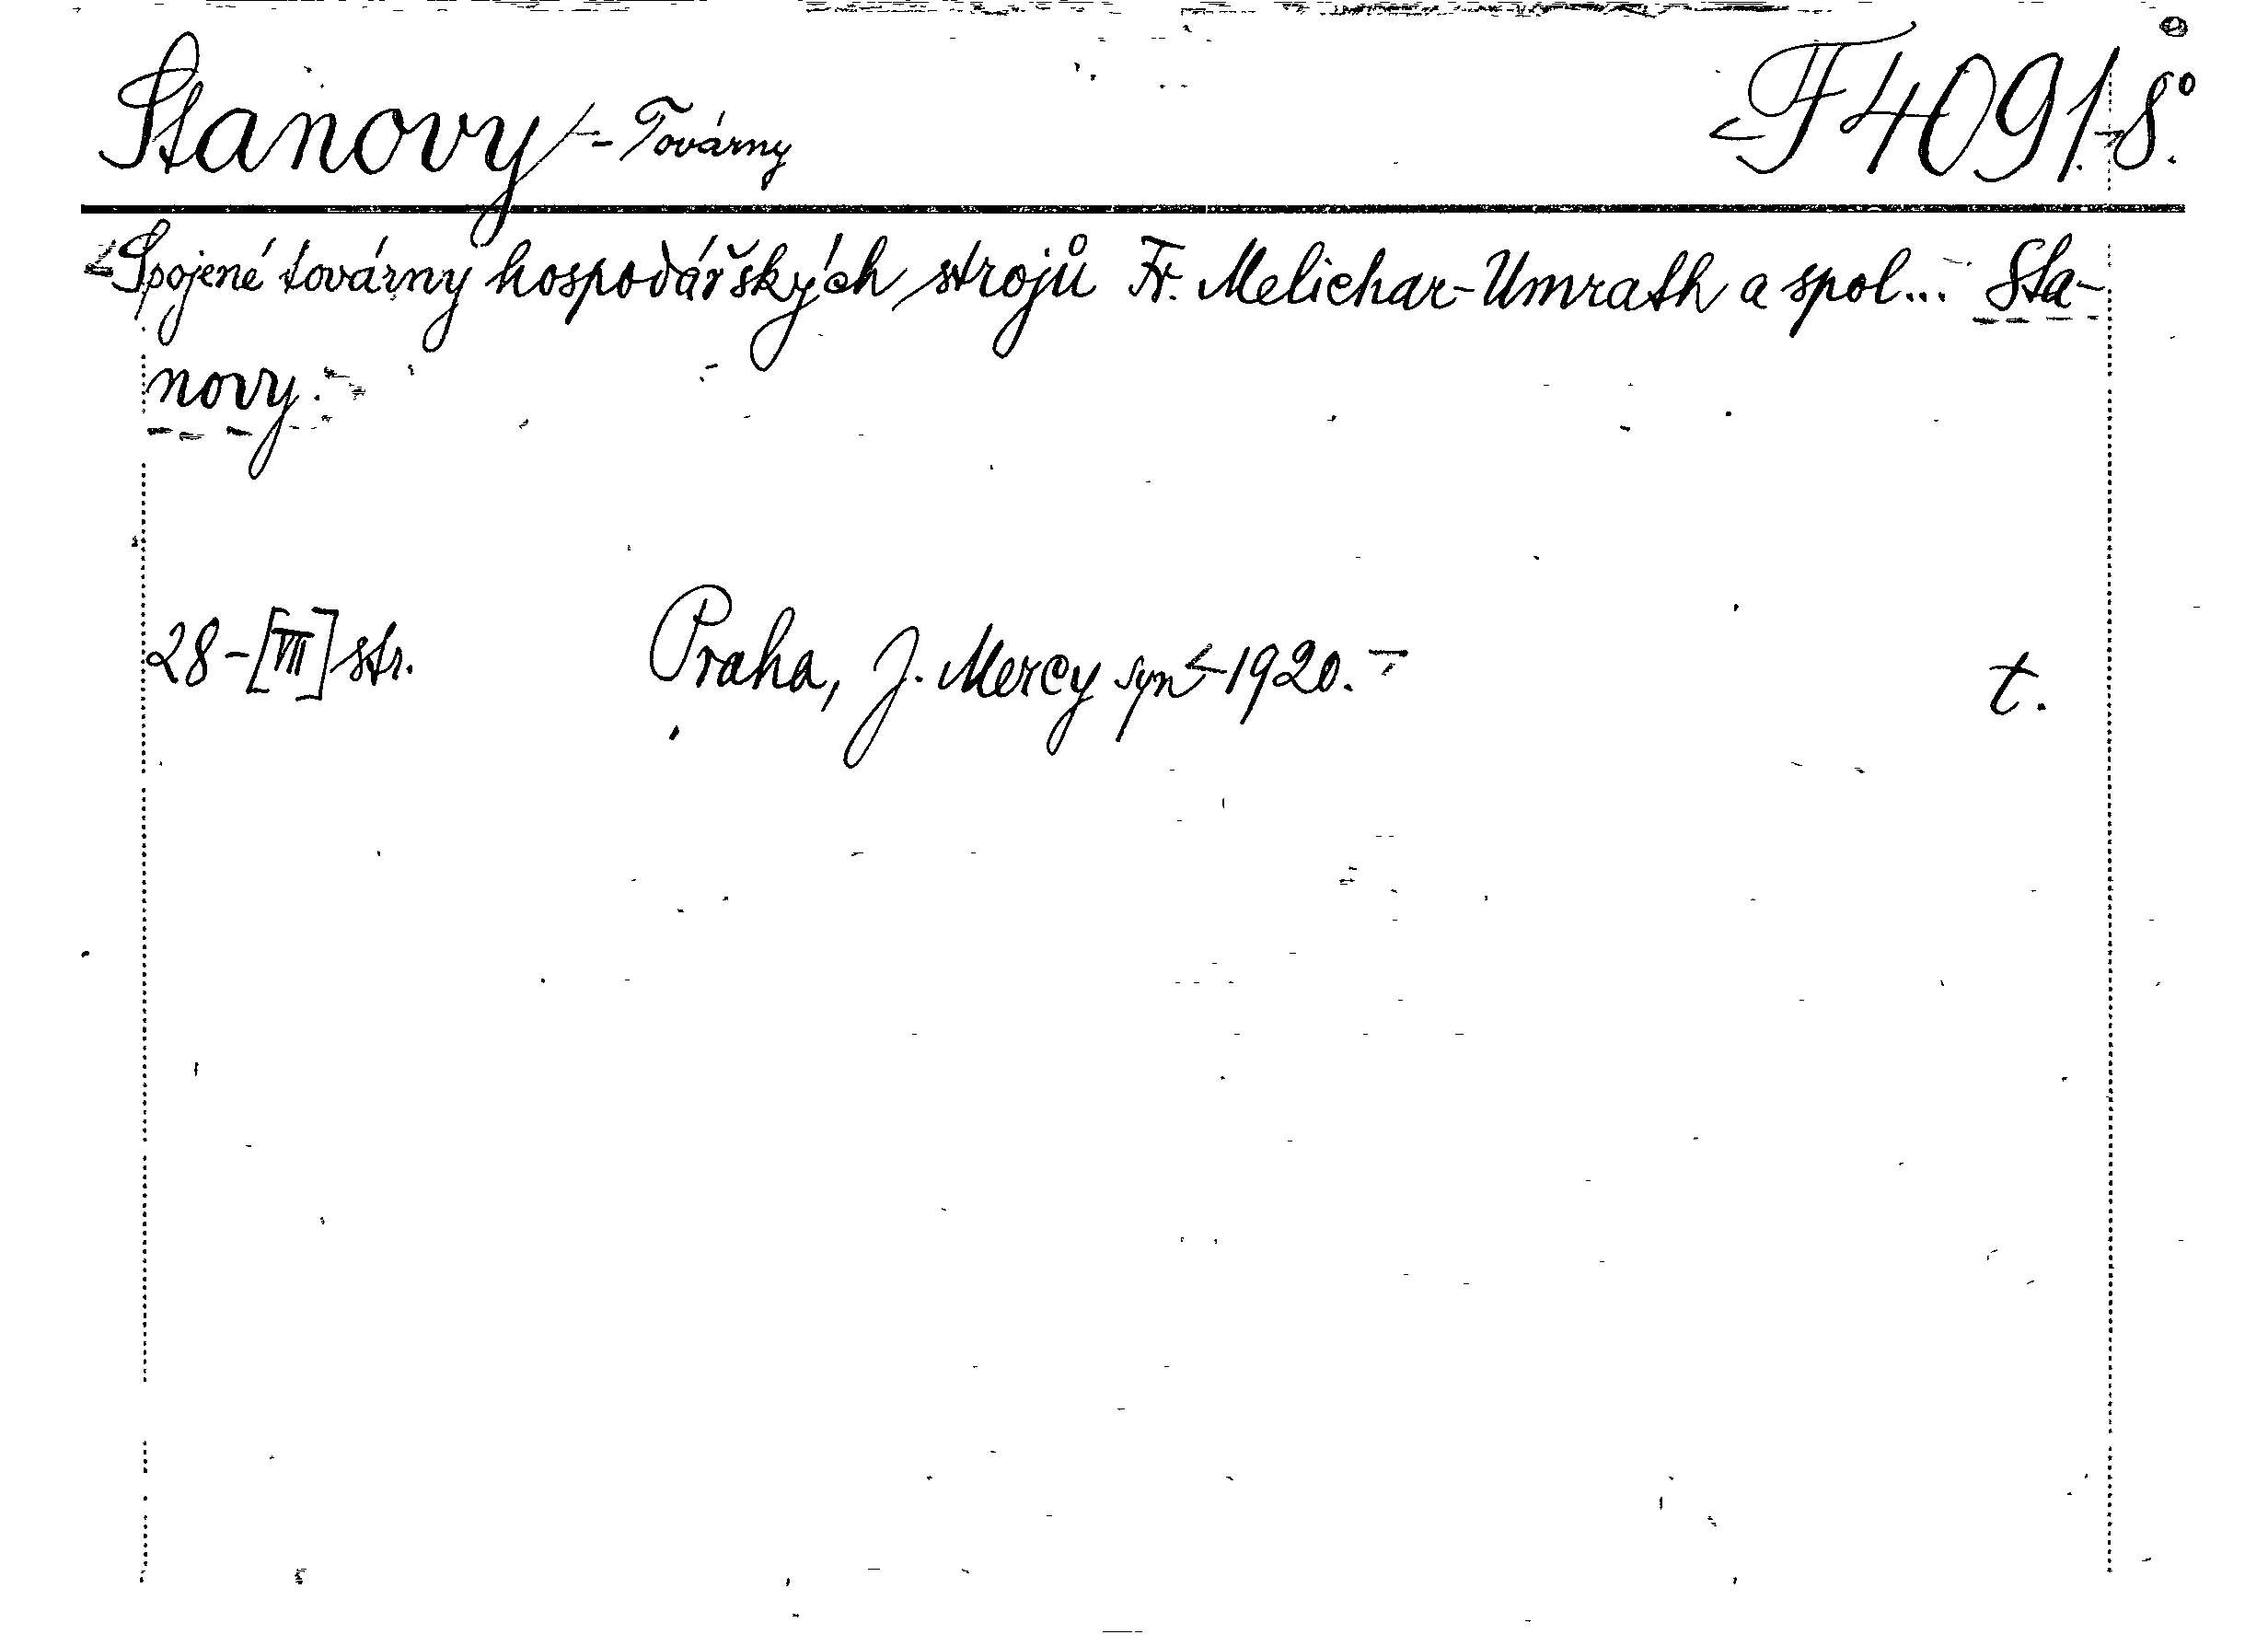 Stanovy - Továrny F 4091. 8°.
Spojené továrny hospodářských strojů Fr. Melichar-Umrath a spol... Sta-
novy.
28-[VII] str. Praha, J. Mercy syn 1920. t.